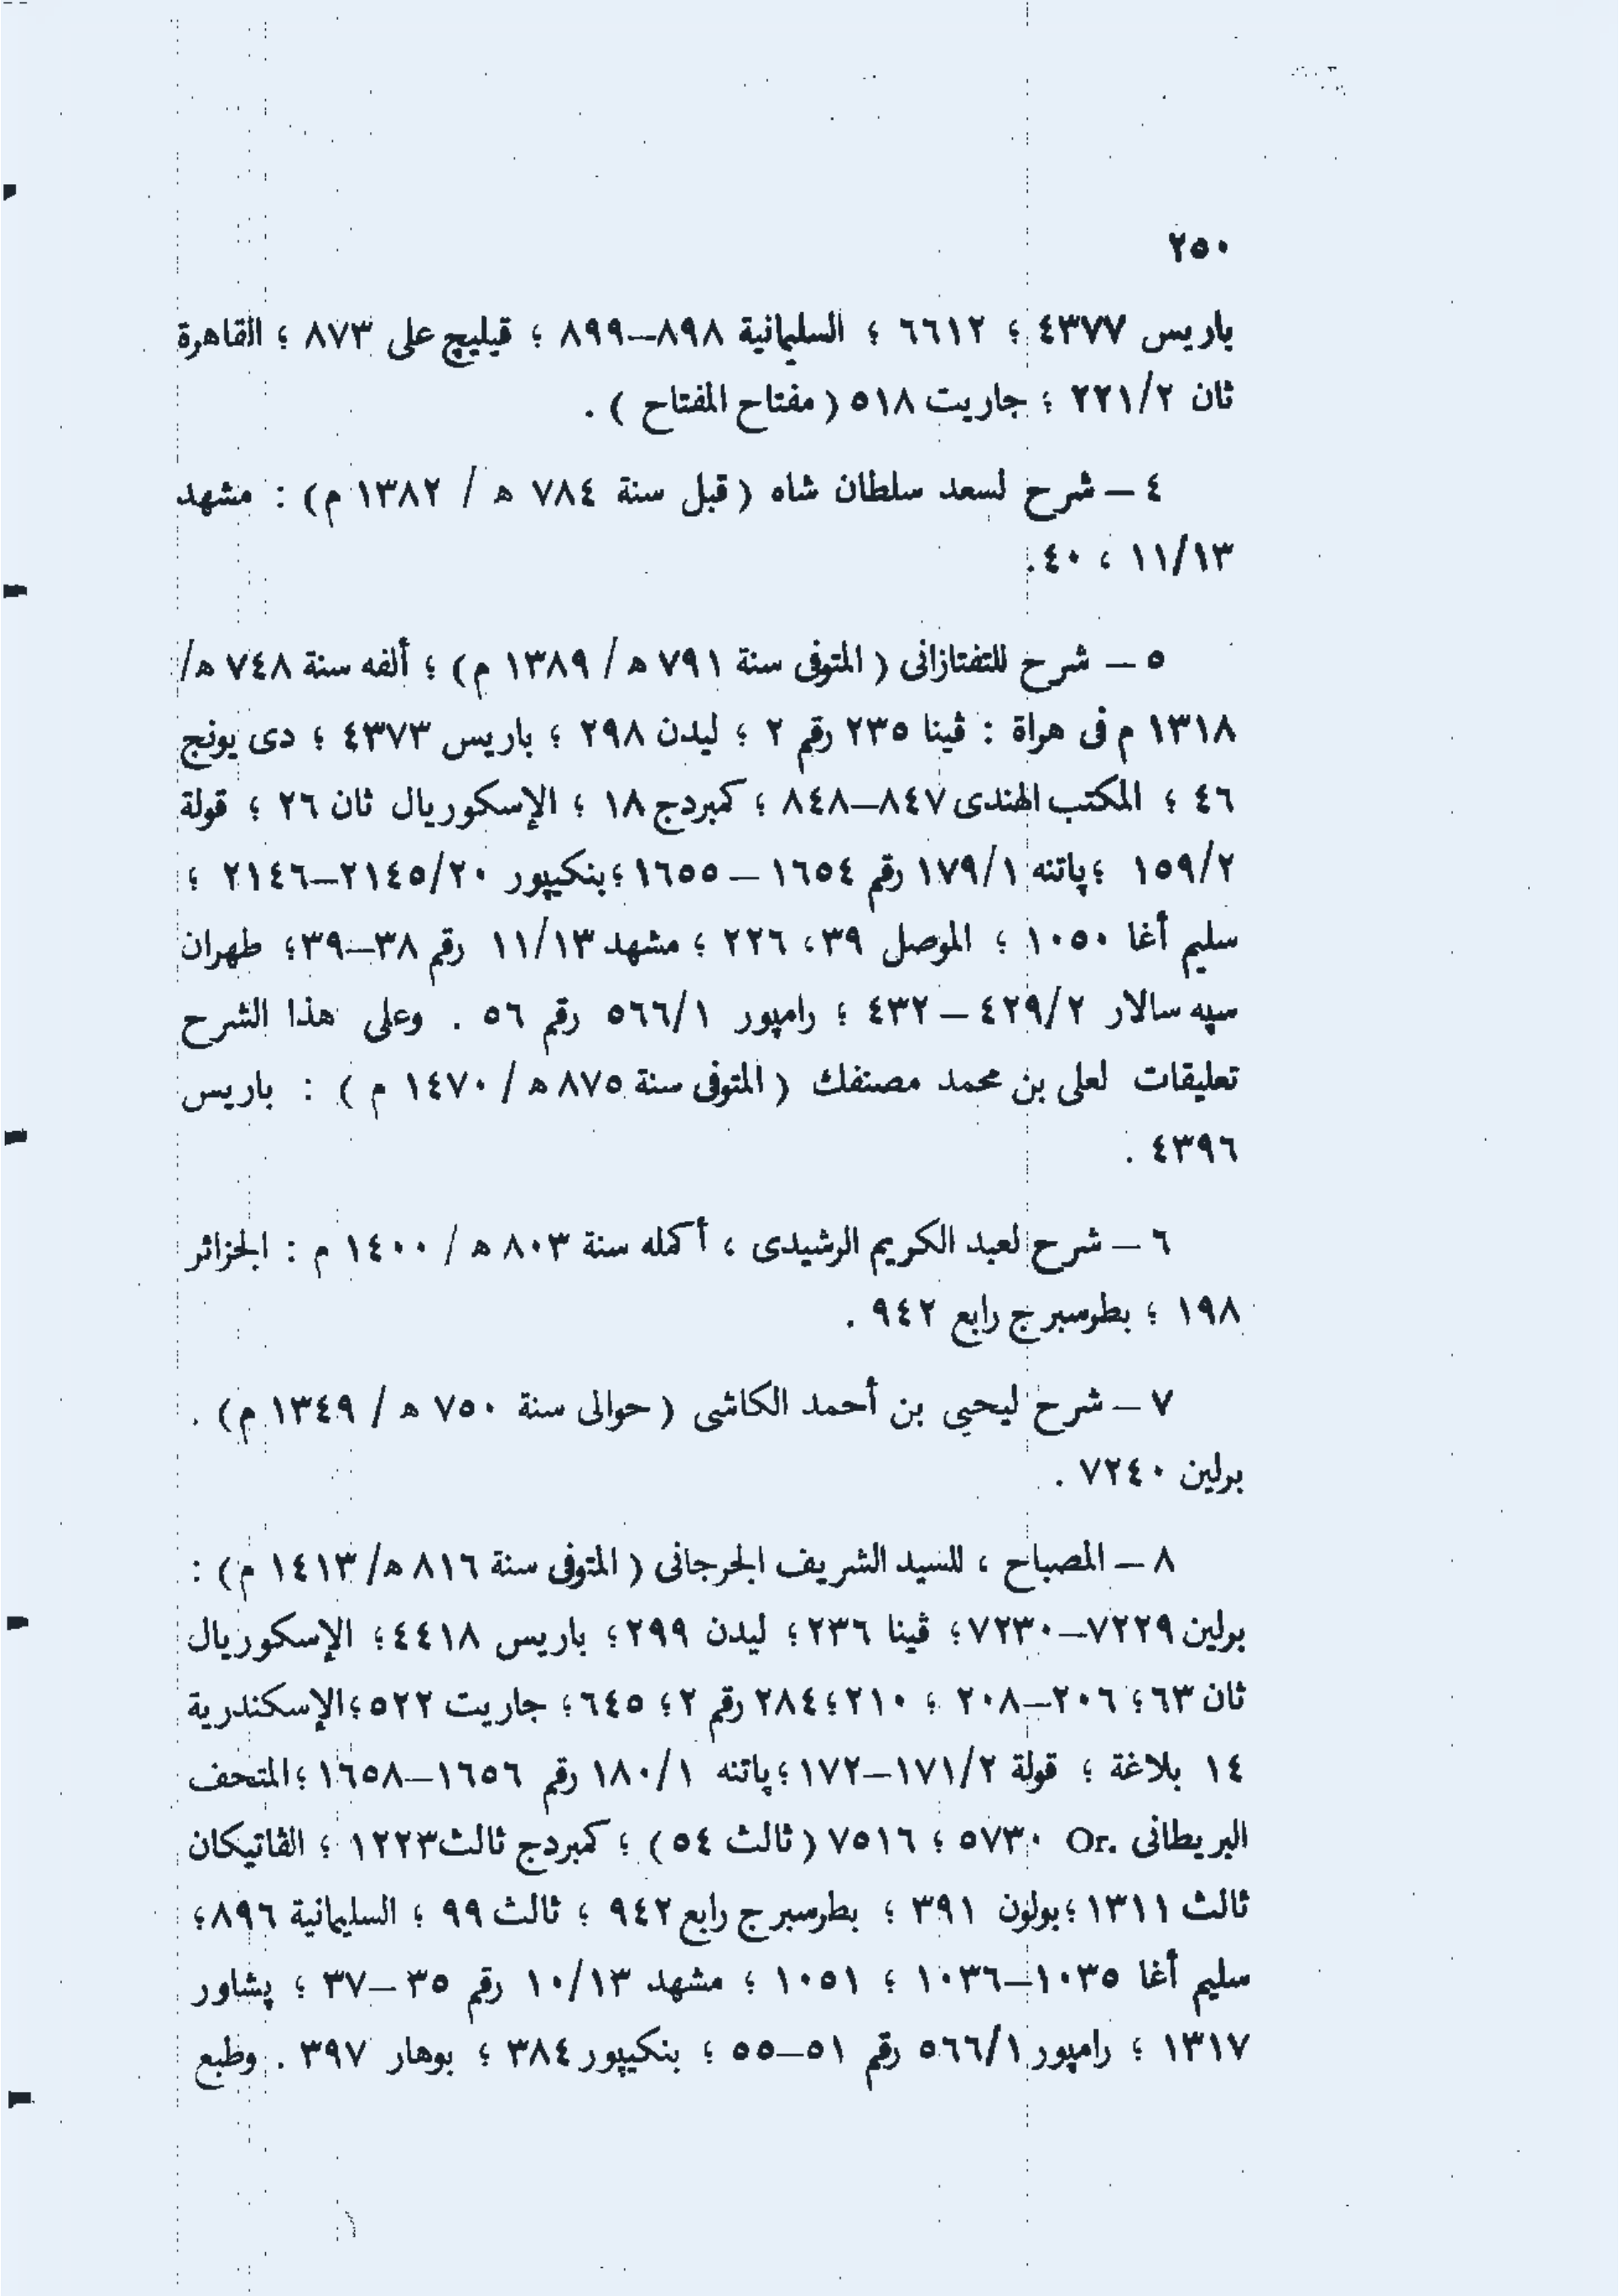 ٢٥٠
باريس ٤٣٧٧ ؛ ٦٦١٢ ؛ السليمانية ٨٩٨–٨٩٩ ؛ قيليچ على ٨٧٣ ؛ القاهرة
ثان ٢٢١/٢ ؛ جاريت ٥١٨ ( مفتاح المفتاح ) .
٤ – شرح لسعد سلطان شاه ( قبل سنة ٧٨٤ ه / ١٣٨٢ م ) : مشهد
١١/١٣ ، ٤٠.
٥ – شرح للتفتازانى ( المتوفى سنة ٧٩١ ه / ١٣٨٩ م ) ؛ ألفه سنة ٧٤٨ ه/
١٣١٨ م فى هراة : ڤينا ٢٣٥ رقم ٢ ؛ ليدن ٢٩٨ ؛ باريس ٤٣٧٣ ؛ دى يونج
٤٦ ؛ المكتب الهندى ٨٤٧–٨٤٨ ؛ كمبردج ١٨ ؛ الإسكوريال ثان ٢٦ ؛ قولة
١٥٩/٢ ؛ پاتنه ١٧٩/١ رقم ١٦٥٤ – ١٦٥٥ ؛ بنكيپور ٢١٤٥/٢٠–٢١٤٦ ؛
سليم أغا ١٠٥٠ ؛ الموصل ٣٩، ٢٢٦ ؛ مشهد ١١/١٣ رقم ٣٨–٣٩؛ طهران
سپه سالار ٤٢٩/٢ – ٤٣٢ ؛ رامپور ٥٦٦/١ رقم ٥٦ . وعلى هذا الشرح
تعليقات لعلى بن محمد مصنفك ( المتوفى سنة ٨٧٥ ه / ١٤٧٠ م ) : باريس
٤٣٩٦ .
٦ – شرح لعبد الكريم الرشيدى ، أكمله سنة ٨٠٣ ه / ١٤٠٠ م : الجزائر
١٩٨ ؛ بطرسبرج رابع ٩٤٢ .
٧ – شرح ليحيي بن أحمد الكاشى ( حوالى سنة ٧٥٠ ه / ١٣٤٩ م ) .
برلين ٧٢٤٠ .
٨ – المصباح ، للسيد الشريف الجرجانى ( المتوفى سنة ٨١٦ ه/ ١٤١٣ م ) :
برلين ٧٢٢٩–٧٢٣٠؛ ڤينا ٢٣٦ ؛ ليدن ٢٩٩ ؛ باريس ٤٤١٨ ؛ الإسكوريال
ثان ٦٣؛ ٢٠٦–٢٠٨ ؛ ٢١٠ ؛٢٨٤ رقم ٢ ؛ ٦٤٥ ؛ جاريت ٥٢٢ ؛الإسكندرية
١٤ بلاغة ؛ قولة ١٧١/٢–١٧٢ ؛ پاتنه ١٨٠/١ رقم ١٦٥٦–١٦٥٨ ؛المتحف
البريطانى Or. ٥٧٣٠ ؛ ٧٥١٦ ( ثالث ٥٤ ) ؛ كمبردج ثالث١٢٢٣ ؛ الڤاتيكان
ثالث ١٣١١ ؛بولون ٣٩١ ؛ بطرسبرج رابع ٩٤٢ ؛ ثالث ٩٩ ؛ السليمانية ٨٩٦؛
سليم أغا ١٠٣٥–١٠٣٦ ؛ ١٠٥١ ؛ مشهد ١٠/١٣ رقم ٣٥ –٣٧ ؛ پشاور
١٣١٧ ؛ رامپور ٥٦٦/١ رقم ٥١–٥٥ ؛ بنكيپور ٣٨٤ ؛ بوهار ٣٩٧ . وطبع